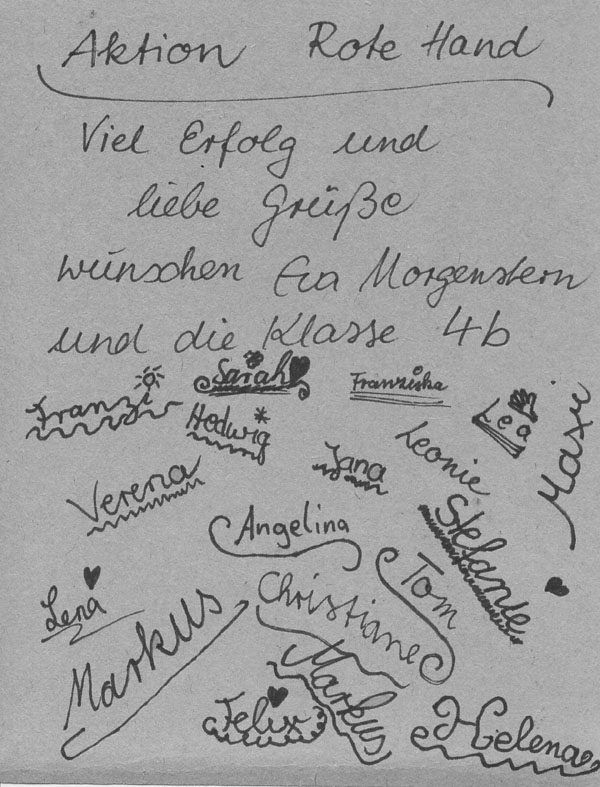 Aktion Rote Hand
Viel Erfolg und
liebe Grüße
wünschen Eva Morgenstern
und die Klasse 4b
Franzi
Sarah
Franziska
Lea
Maxi
Hedwig
Leonie
Jana
Verena
Stefanie
Angelina
Tom
Christiane
Lena
Markus
Markus
Felix
Helena